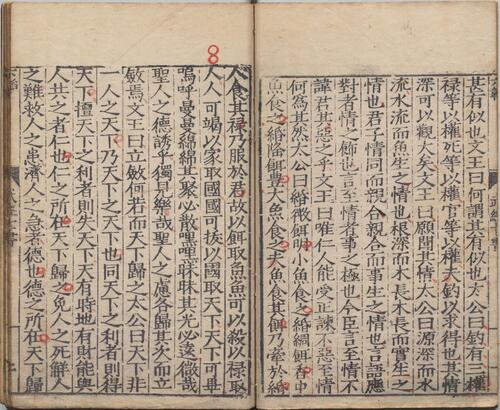 甚有似也文王曰何謂其有似也太公曰釣有三權
祿等以權死等以權官等以權夫釣以求得也其情
深可以觀大矣文王曰願聞其情太公曰源深而水
流水流而魚生之情也根深而木長木長而實生之
情也君子情同而親合親合而事生之情也言語應
對者情之飾也言至情者事之極也今臣言至情不
諱君其惡之乎文王曰唯仁人能受正諫不惡至情
何為其然太公曰緡微餌明小魚食之緡綢餌香中
魚食之緡隆餌豐大魚食之夫魚食其餌乃牽於緡
8
人食其祿乃服於君故以餌取魚魚可以殺以祿取
人人可竭以家取國國可拔以國取天下天下可畢
嗚呼曼曼綿綿其聚必散嘿嘿昧昧其光必遠微哉
聖人之德誘乎獨見樂哉聖人之慮各歸其次而立
斂焉文王曰立斂何若而天下歸之太公曰天下非
一人之天下乃天下之天下也同天下之利者則得
天下擅天下之利者則失天下天有時地有財能與
人共之者仁也仁之所在天下歸之免人之死解人
之難救人之患濟人之急者德也德之所在天下歸